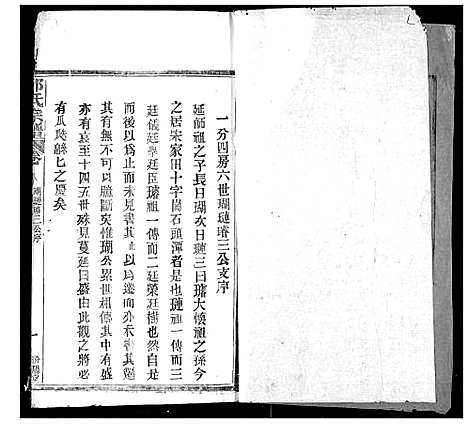 一分四房六世瑚璉璿三公支序
延師祖之子長曰瑚次曰璉三曰璿大懷祖之孫今
之居宋家田十字崗石頭潭者是也璉祖一傳而三
廷儀廷舉廷臣璿祖一傳而二廷榮廷樁也然自是
而後以爲止此而未見書其 以爲流派多而書
其有無不可臆斷矣惟瑚公累世相傳其中有盛
亦有衰至十四五世殊見蔓延日盛由此觀之將必
有瓜瓞緜匕之慶矣
氏族譜
瑚璉璿三公序
一